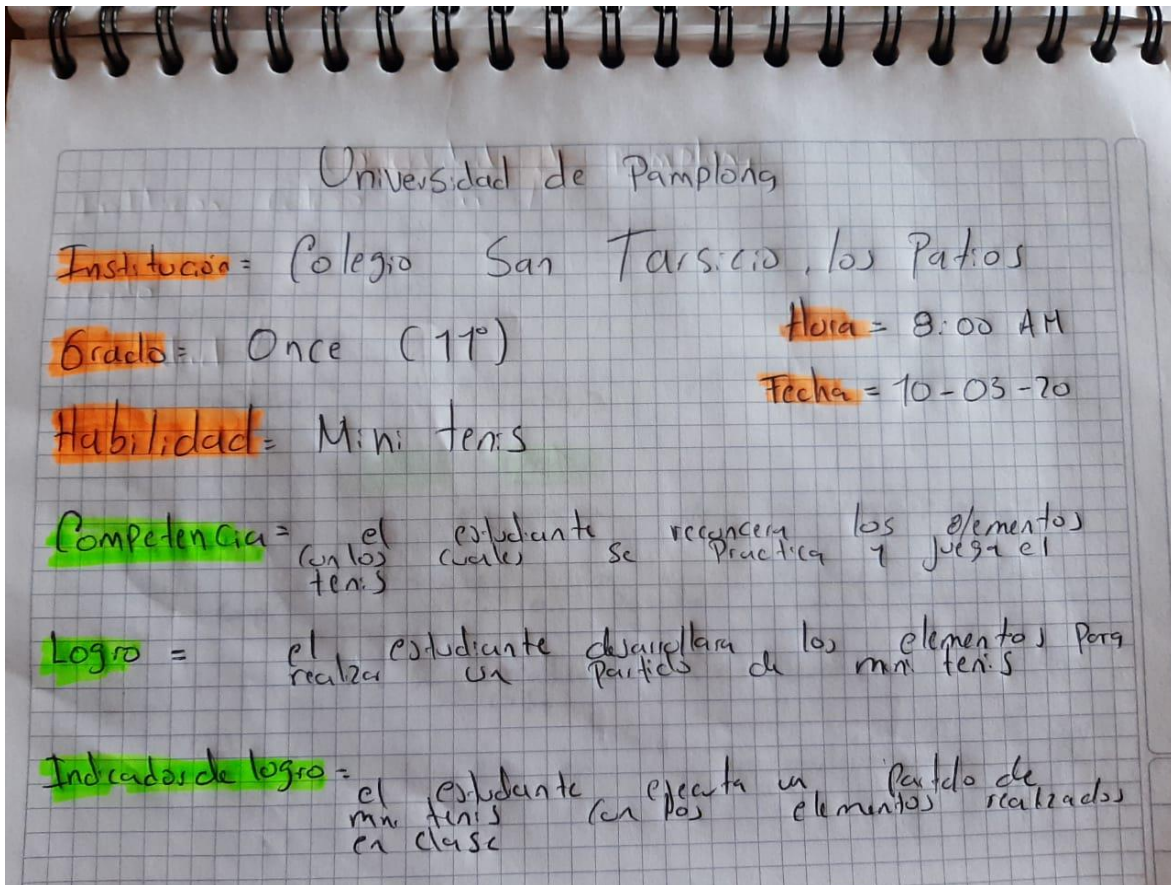 Universidad de Pamplona
Institución = Colegio San Tarsicio, los Patios
Grado = Once (11°)
Hora = 8:00 AM
Fecha = 10-03-20
Habilidad = Mini tenis
Competencia = el estudiante reconcera los elementos
con los cuales se Practica y juega el
tenis
Logro = el estudiante desarrollara los elementos para
realizar un partido de mini tenis
Indicador de logro = el estudiante ejecuta un Partido de
mini tenis con los elementos realizados
en clase